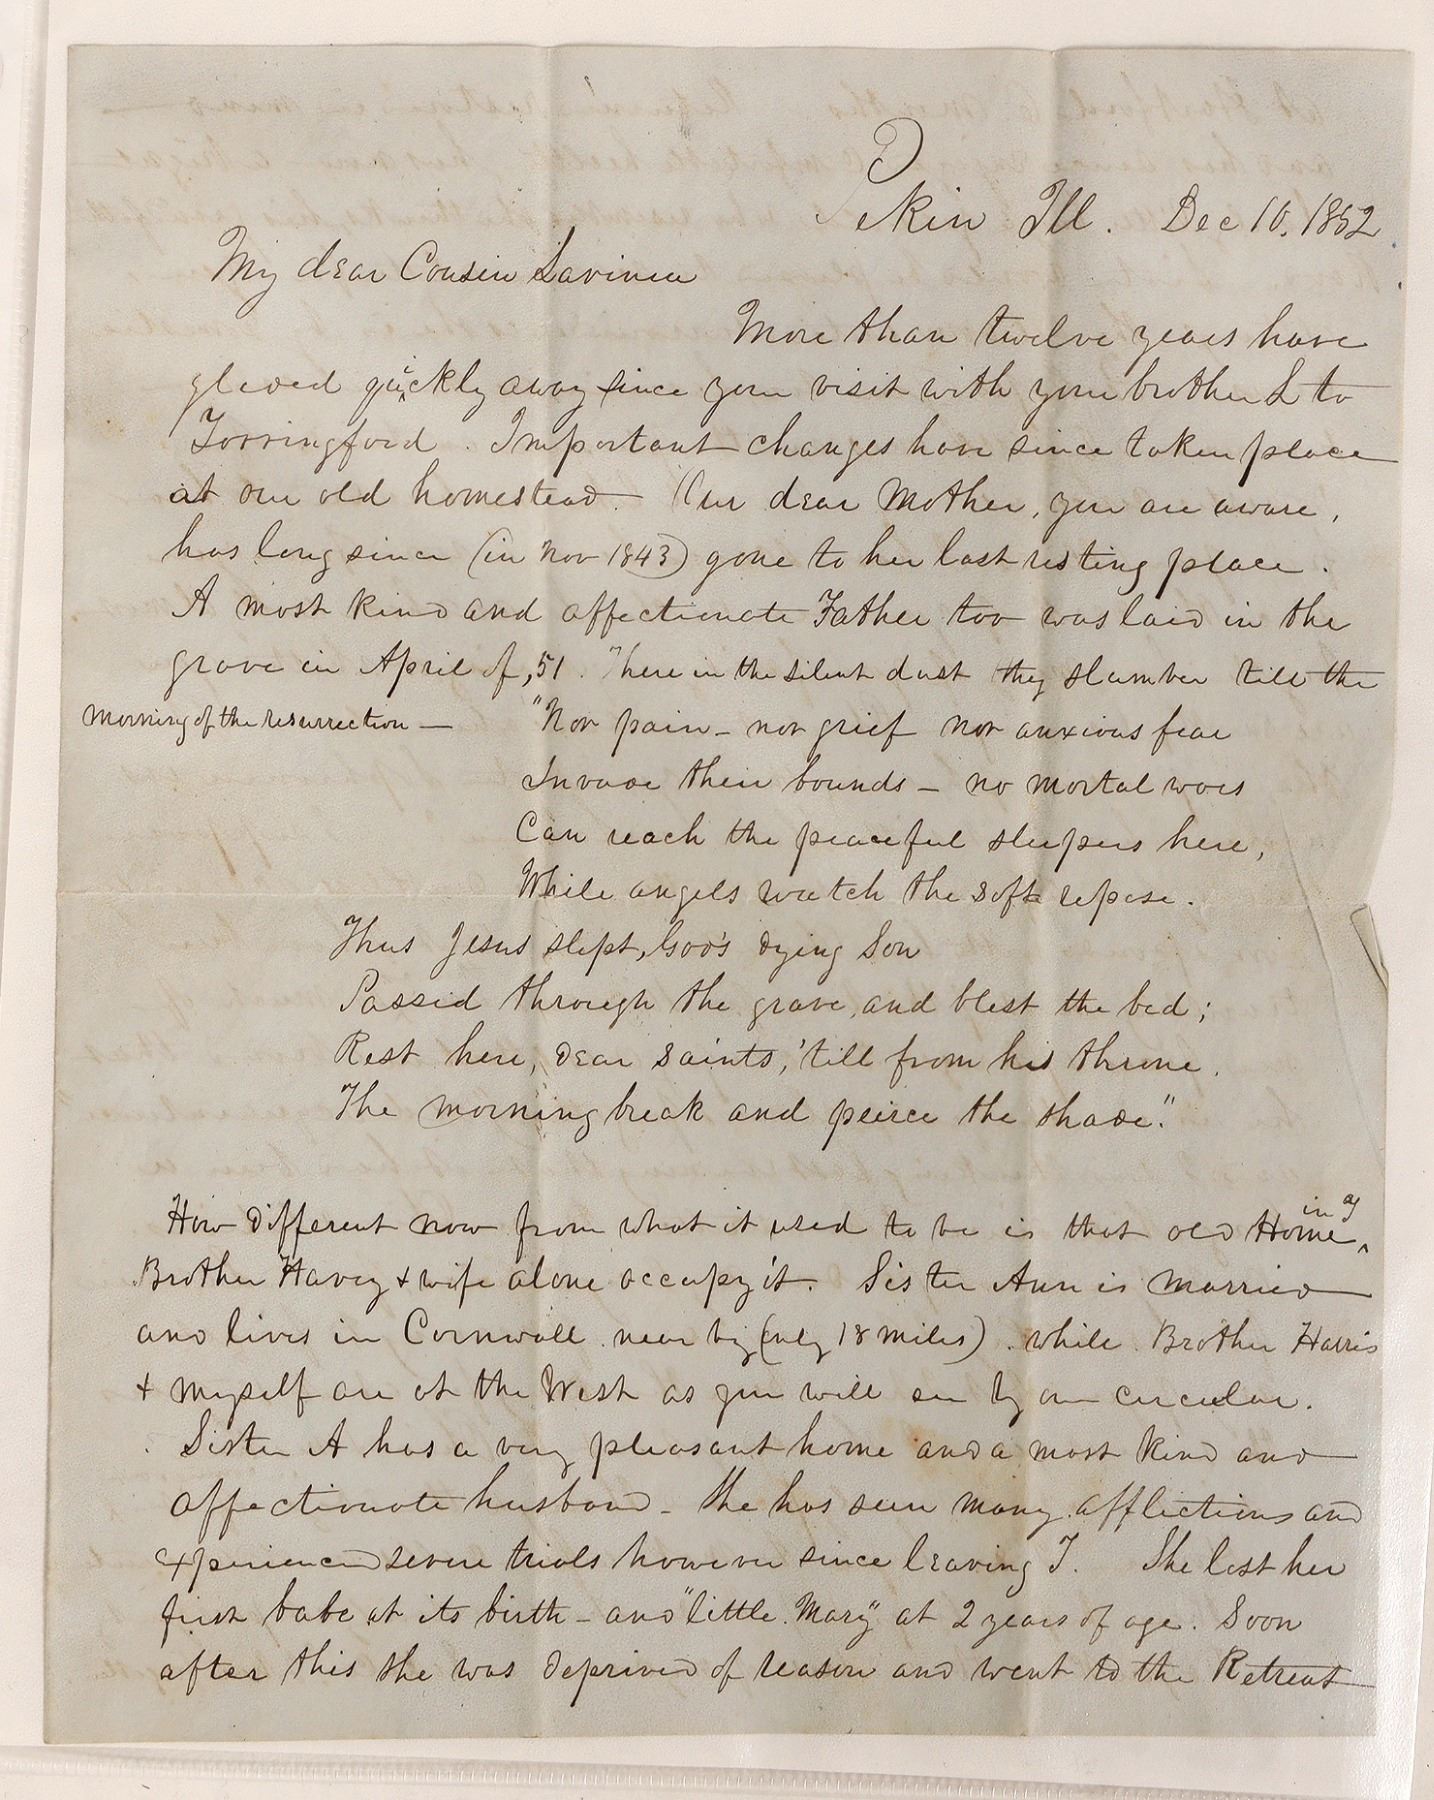 Pekin Ill. Dec 10, 1852
My dear Cousin Lavinia
More than twelve years have
glided quickly away since your visit with your brother L to
Torringford. Important changes have since taken place
at our old homestead. Our dear Mother, you are aware,
has long since (in Nov 1843) gone to her last resting place.
A most kind and affectionate Father too was laid in the
grave in April of ,51. There in the silent dust they slumber till the
morning of the resurrection —
"Nor pain - nor grief nor anxious fear
Invade their bounds - no mortal woes
Can reach the peaceful sleepers here,
While angels watch the soft repose.
Thus Jesus slept, God's dying Son
Passed through the grave, and blest the bed;
Rest here, dear saints, 'till from his throne.
The morning break and peirce the shade."
How different now from what it used to be is that old Home, in
Brother Harvey & wife alone occupy it. Sister Ann is married
and lives in Cornwall near by (only 18 miles). while Brother Harris
& myself are at the West as you will see by our circular.
Sister A has a very pleasant home and a most kind and
affectionate husband - She has seen many afflictions and
experienced severe trials however since leaving T. She lost her
first babe at its birth - and "little Mary" at 2 years of age. Soon
after this she was deprived of reason and went to the Retreat